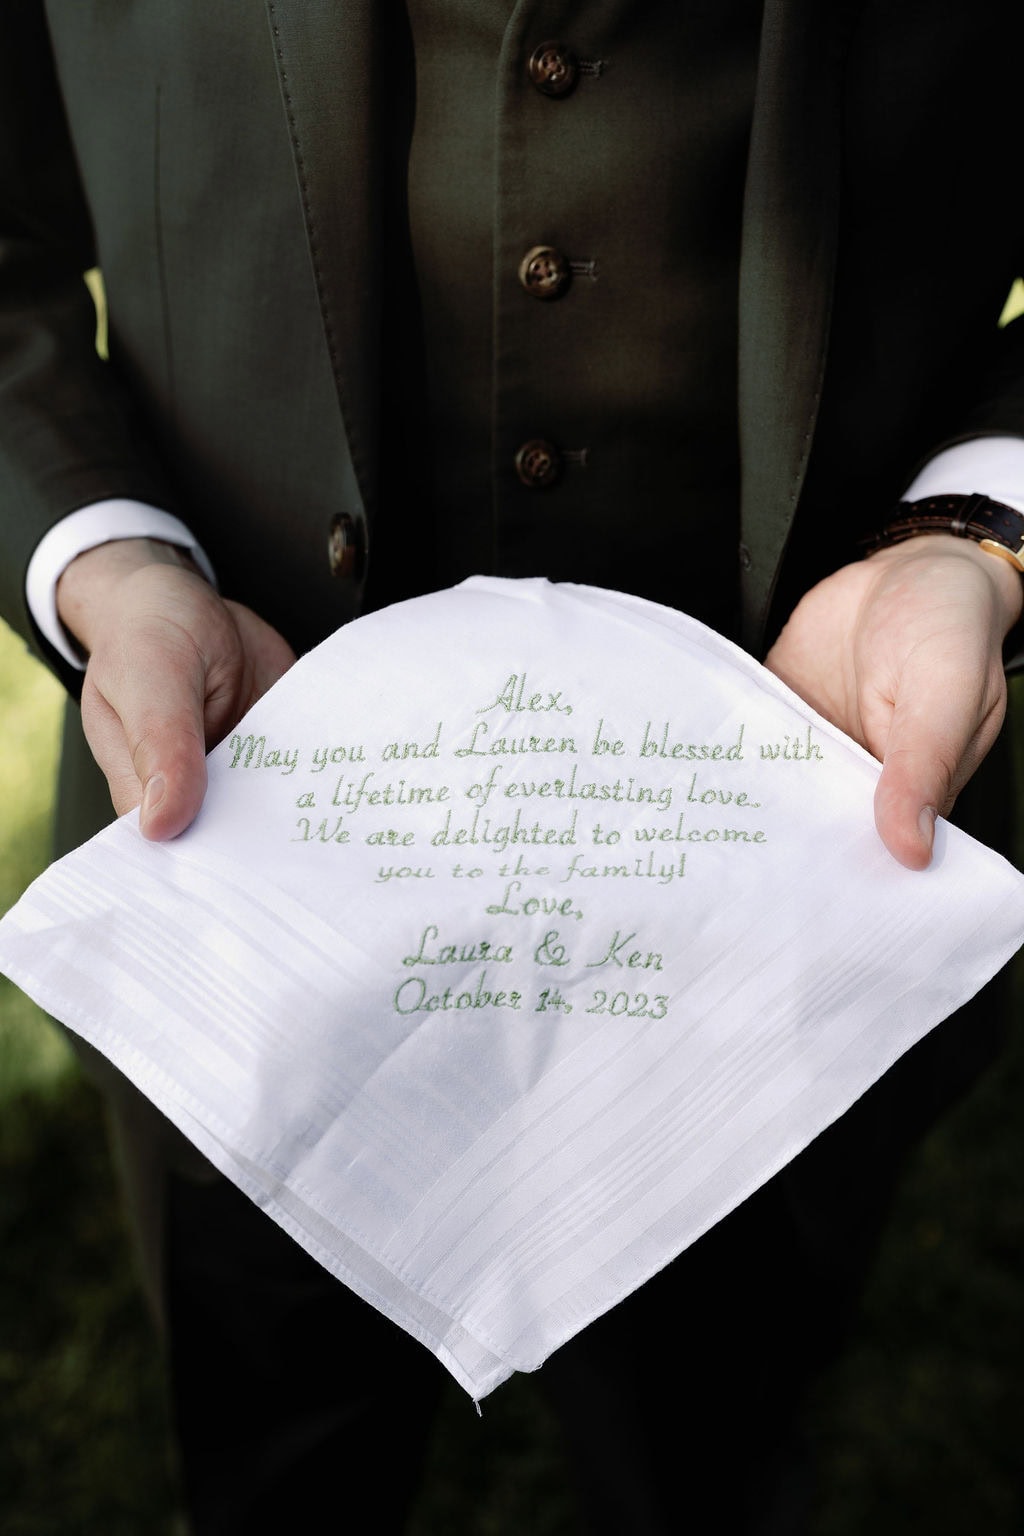 Alex,
May you and Lauren be blessed with
a lifetime of everlasting love.
We are delighted to welcome
you to the family!
Love,
Laura & Ken
October 14, 2023